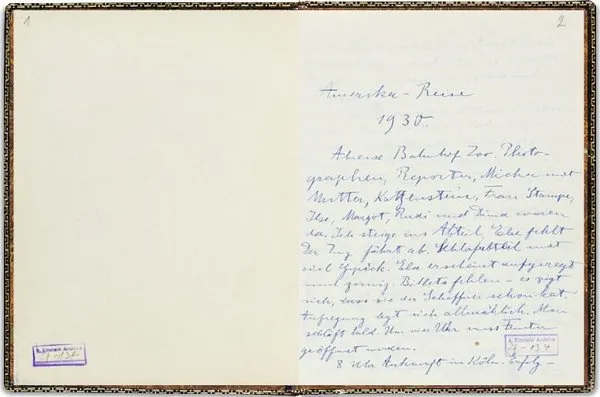 1
2
Amerika-Reise
1930.
Abreise Bahnhof Zoo. Photo-
graphen, Reporter, Michа mit
Mutter, Katzenstein, Frau Stampe,
Ilse, Margot, Rudi und Dima waren
da. Ich steige ins Abteil. Else fehlt
Der Zug fährt ab. Schlafabteil mit
viel Gepäck. Else erscheint aufgeregt
und zornig. Billets fehlen – es zeigt
sich, dass sie der Schaffner schon hat.
Aufregung legt sich allmählich. Man
schläft bald. Um vier Uhr muss Fenster
geöffnet werden.
8 Uhr Ankunft in Köln. Erfolg-
A. Einstein Archive
A. Einstein Archive